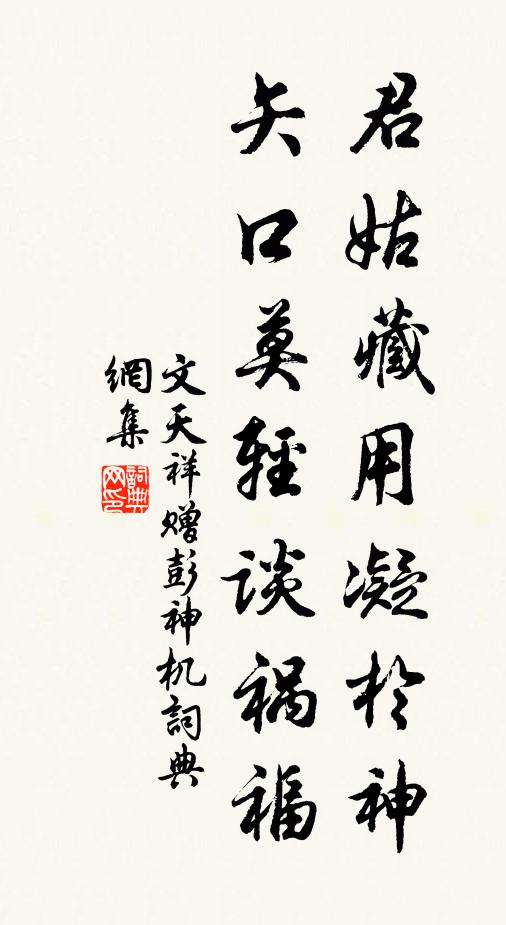 君姑藏用凝於神
矢口莫輕谈祸福
文天祥赠彭神机詞典
網集
詞典
网印